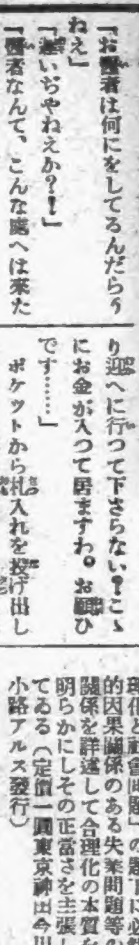 「お醫者は何にをしてるんだらう
ねえ」
「遲いぢやねえか？！」
「醫者なんて、こんな處へは來た
り迎へに行つて下さらない？こゝ
にお金が入つて居ますわ。お願ひ
です……」
ポケツトから札入れを投げ出し
理化と社會問題」の題下に
的因果關係のある失業問題等の
關係を詳述して合理化の本質を
明らかにしその正當さを主張
てゐる（定價一圓東京神田今川
小路アルス發行）